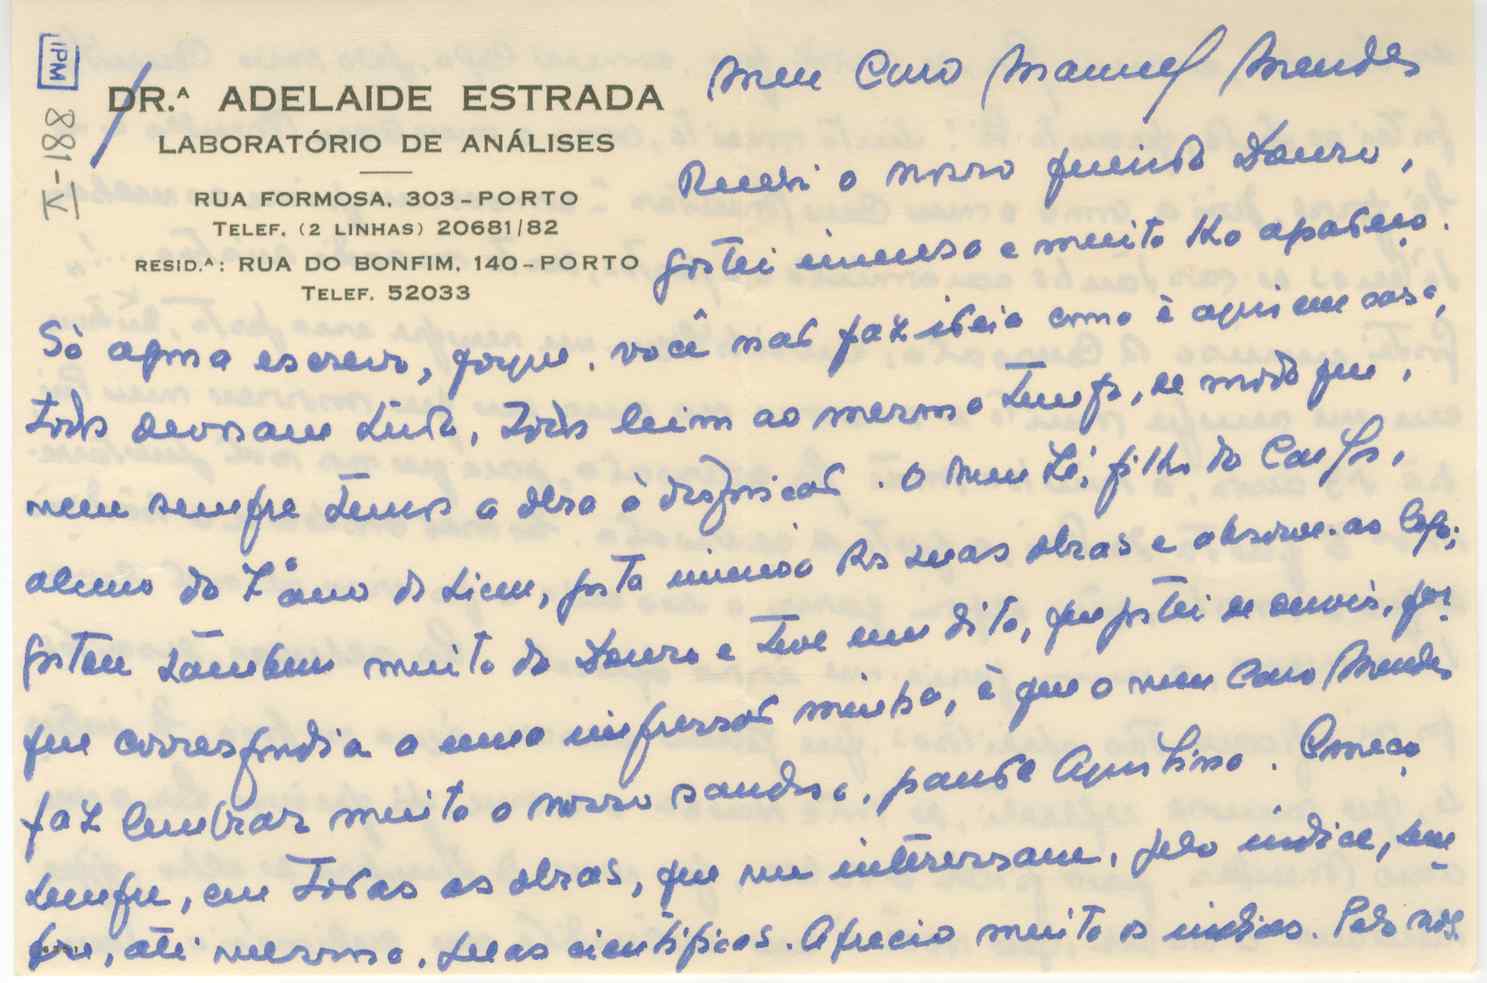 IPM
881-V
DR.ª ADELAIDE ESTRADA
LABORATÓRIO DE ANÁLISES
RUA FORMOSA, 303-PORTO
TELEF. (2 LINHAS) 20681/82
RESID.ª: RUA DO BONFIM, 140-PORTO
TELEF. 52033
Meu Caro Manuel Mendes
Recebi o nosso querido Douro,
gostei imenso e muito lho agradeço.
Só agora escrevo, porque, você não faz ideia como é aqui em casa,
todos devoram tudo, todos leem ao mesmo tempo, de modo que,
nem sempre temos a obra à disposição. O meu Zé, filho do Carlos,
aluno do 7º ano do Liceu, gosta imenso das suas obras e absorve-as logo;
gostou também muito do Douro e teve um dito, que gostei de ouvir, por
que correspondia a uma impressão minha, é que o meu Caro Mendes
faz lembrar muito o nosso saudoso, grande Aquilino. Começo
sempre, em todas as obras, que me interessam, pelo indice, sem
pre, até mesmo, nas cientificas. Aprecio muito os indices. Pelo